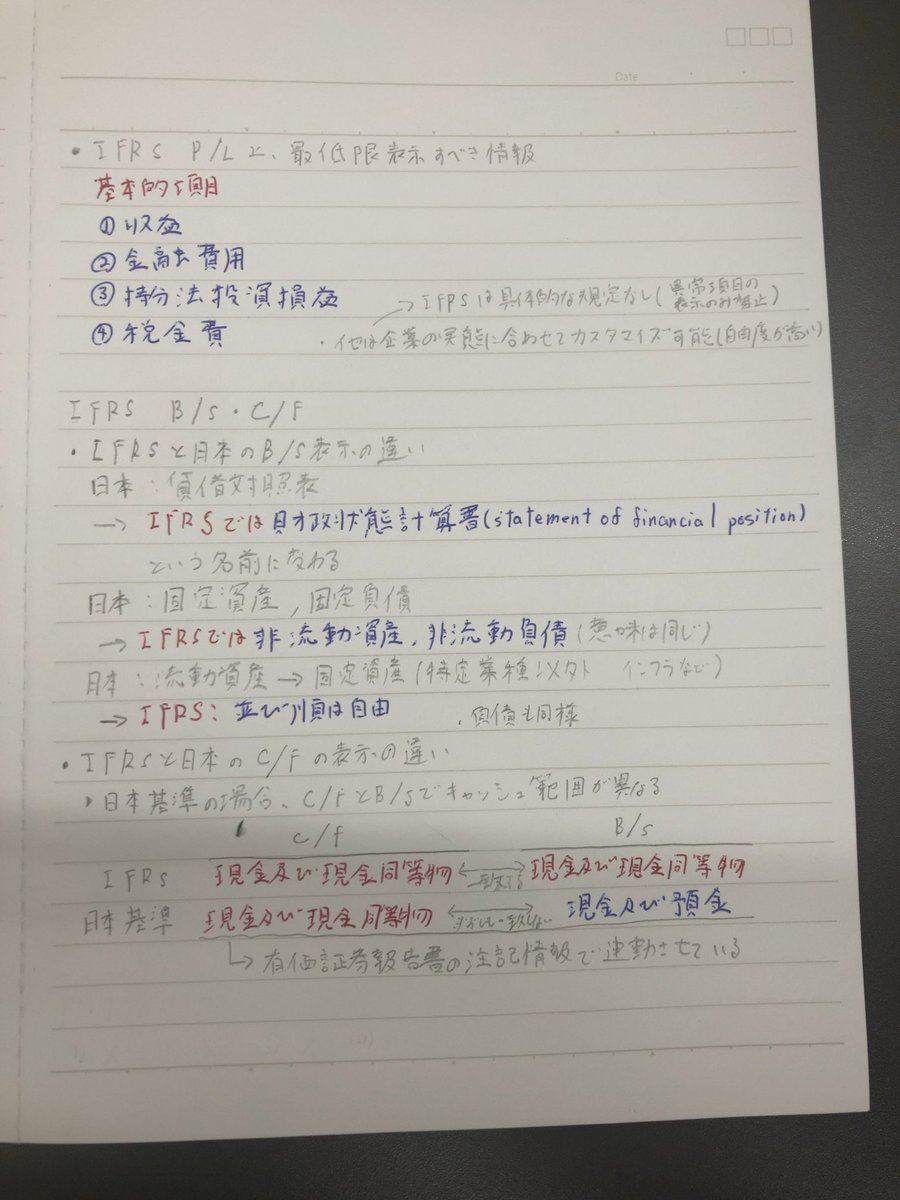 Date
・IFRS P/L上、最低限表示すべき情報
基本的項目
①収益
②金融費用
③持分法投資損益
→IFRSは具体的な規定なし(異常項目の表示のみ禁止)
④税金費
・他は企業の実態に合わせてカスタマイズ可能(自由度が高い)
IFRS B/S・C/F
・IFRSと日本のB/S表示の違い
日本:貸借対照表
→IFRSでは財政状態計算書(statement of financial position)
という名前に変わる
日本:固定資産,固定負債
→IFRSでは非流動資産,非流動負債(意味は同じ)
日本:流動資産→固定資産(特定業種以外 インフラなど)
→IFRS:並び順は自由 .負債も同様
・IFRSと日本のC/Fの表示の違い
・日本基準の場合、C/FとB/Sでキャッシュ範囲が異なる
C/F B/S
IFRS 現金及び現金同等物 ⟷ 一致する 現金及び現金同等物
日本基準 現金及び現金同等物 ⟷ 現金及び預金
↳有価証券報告書の注記情報で連動させている